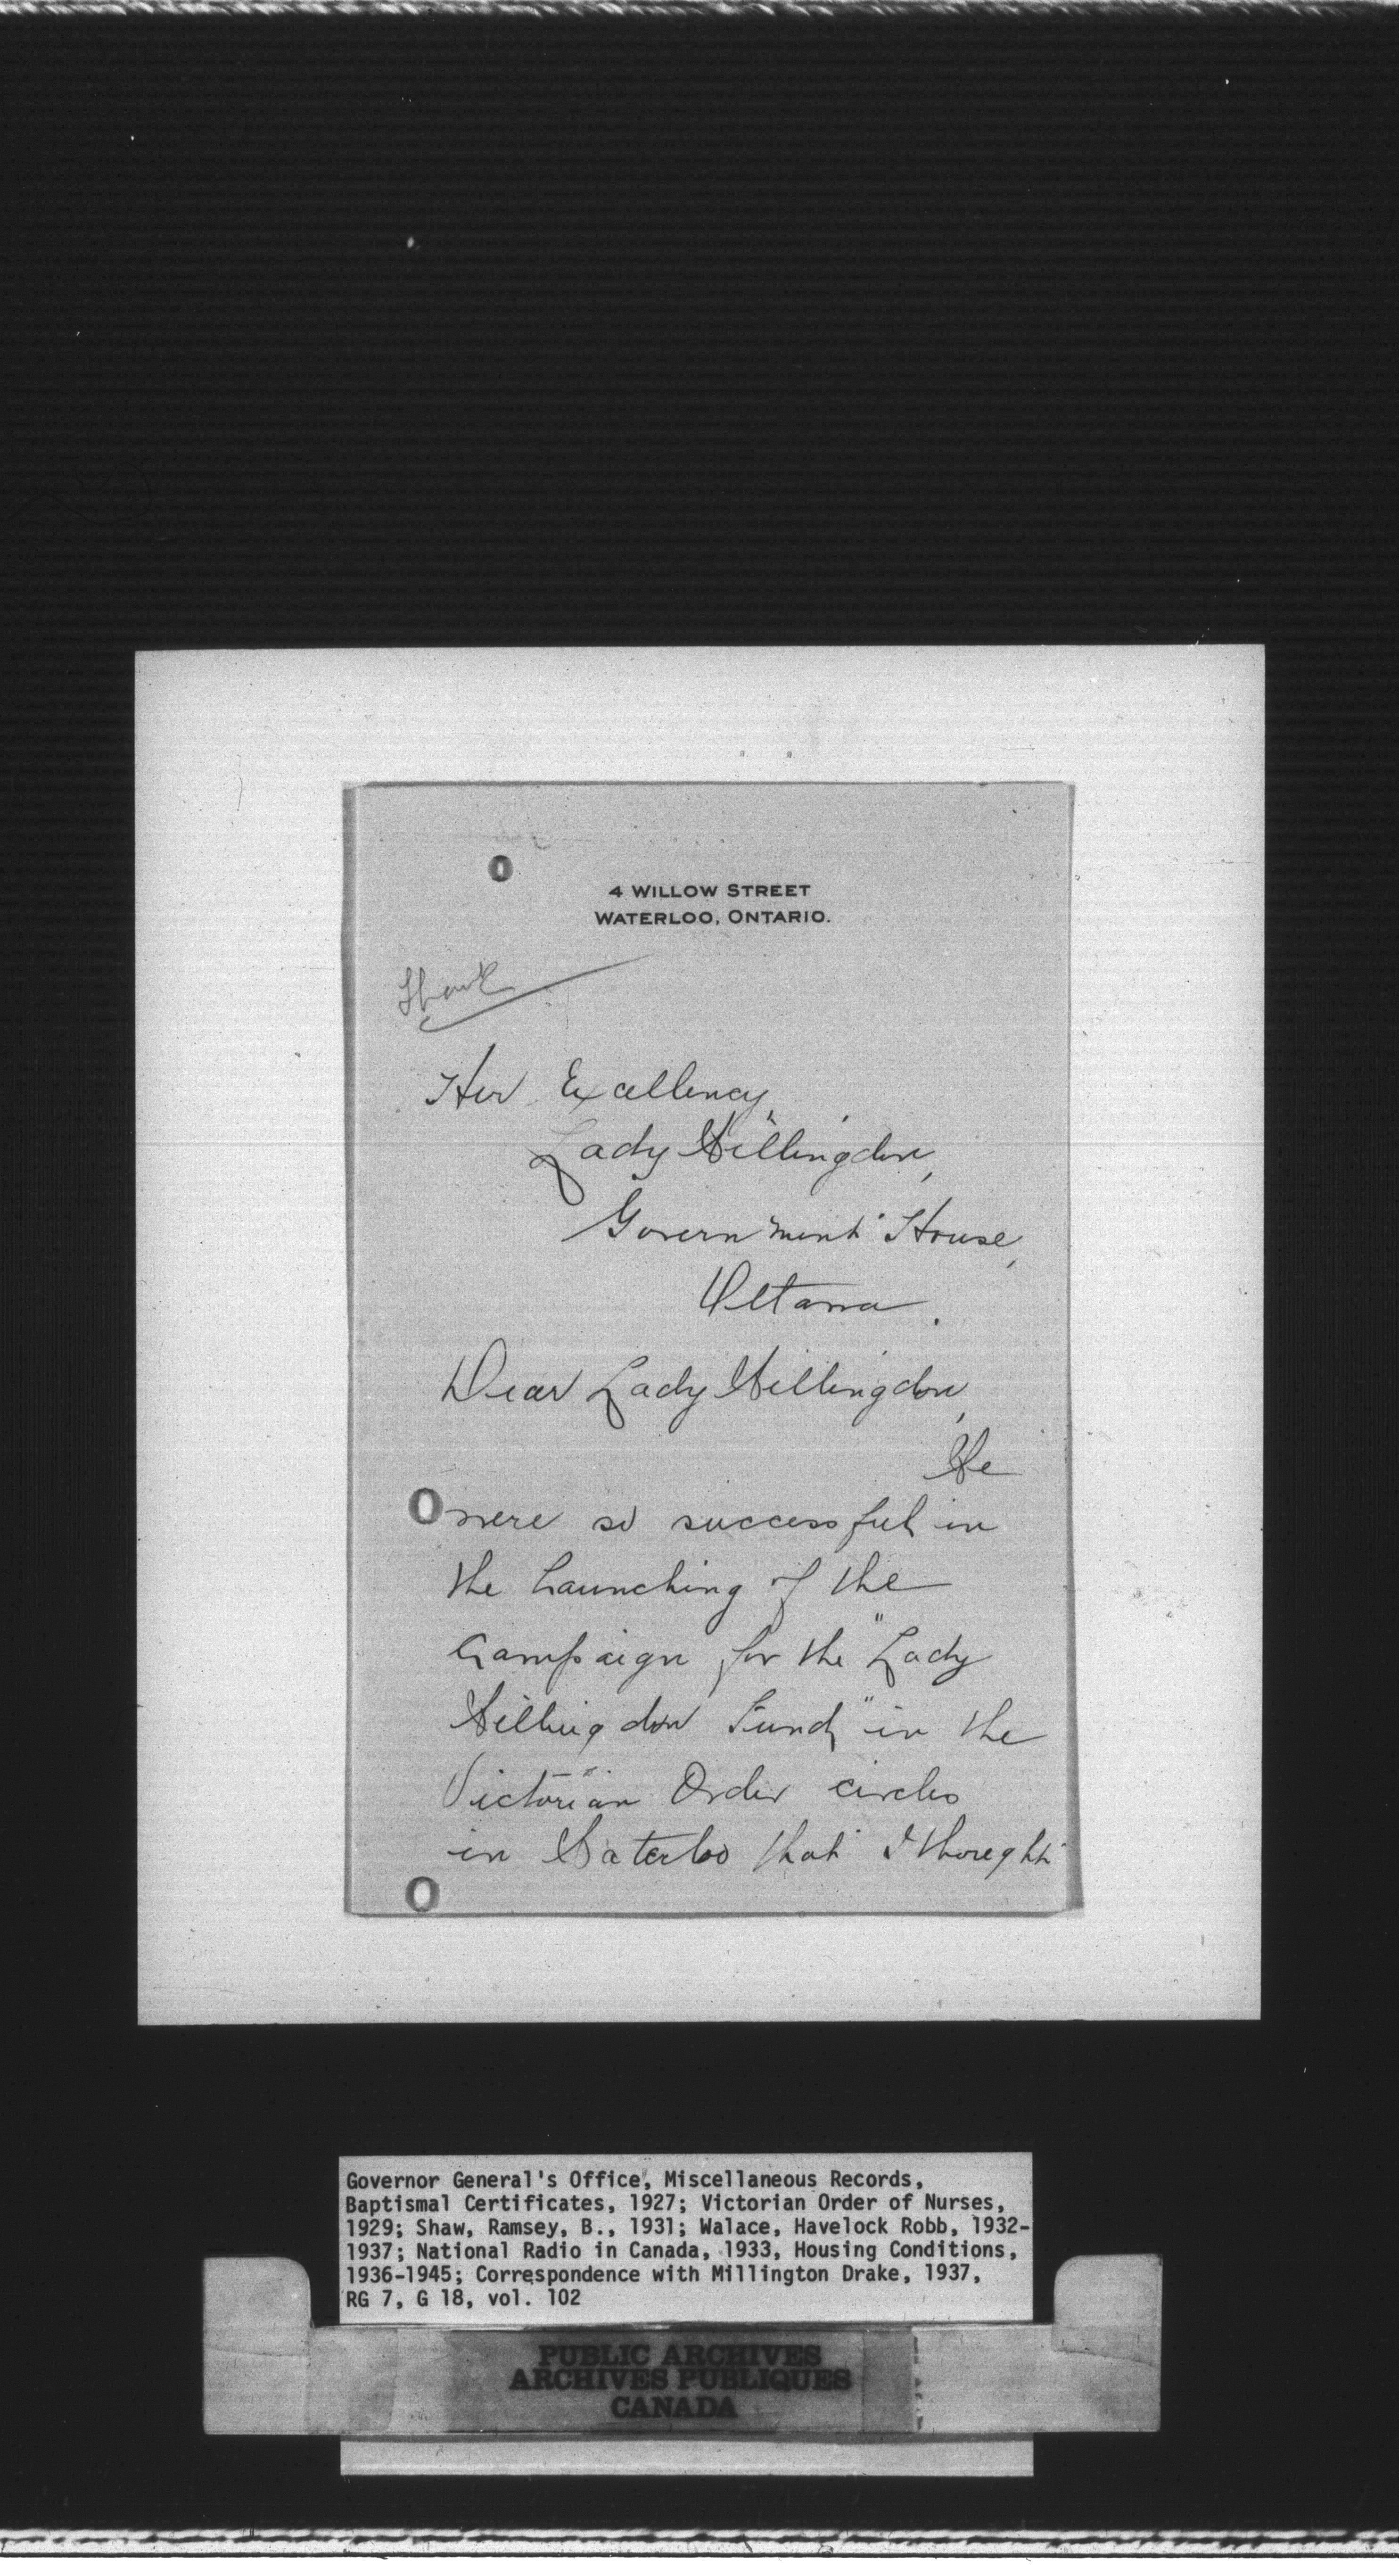 4 WILLOW STREET
WATERLOO, ONTARIO.
Thank
Her Excellency
Lady Willingdon,
Government House,
Ottawa.
Dear Lady Willingdon,
We
were so successful in
the launching of the
Campaign for the "Lady
Willingdon Fund" in the
Victorian Order circles
in Waterloo that I thought
Governor General's Office, Miscellaneous Records,
Baptismal Certificates, 1927; Victorian Order of Nurses,
1929; Shaw, Ramsey, B., 1931; Walace, Havelock Robb, 1932-
1937; National Radio in Canada, 1933, Housing Conditions,
1936-1945; Correspondence with Millington Drake, 1937,
RG 7, G 18, vol. 102
PUBLIC ARCHIVES
ARCHIVES PUBLIQUES
CANADA